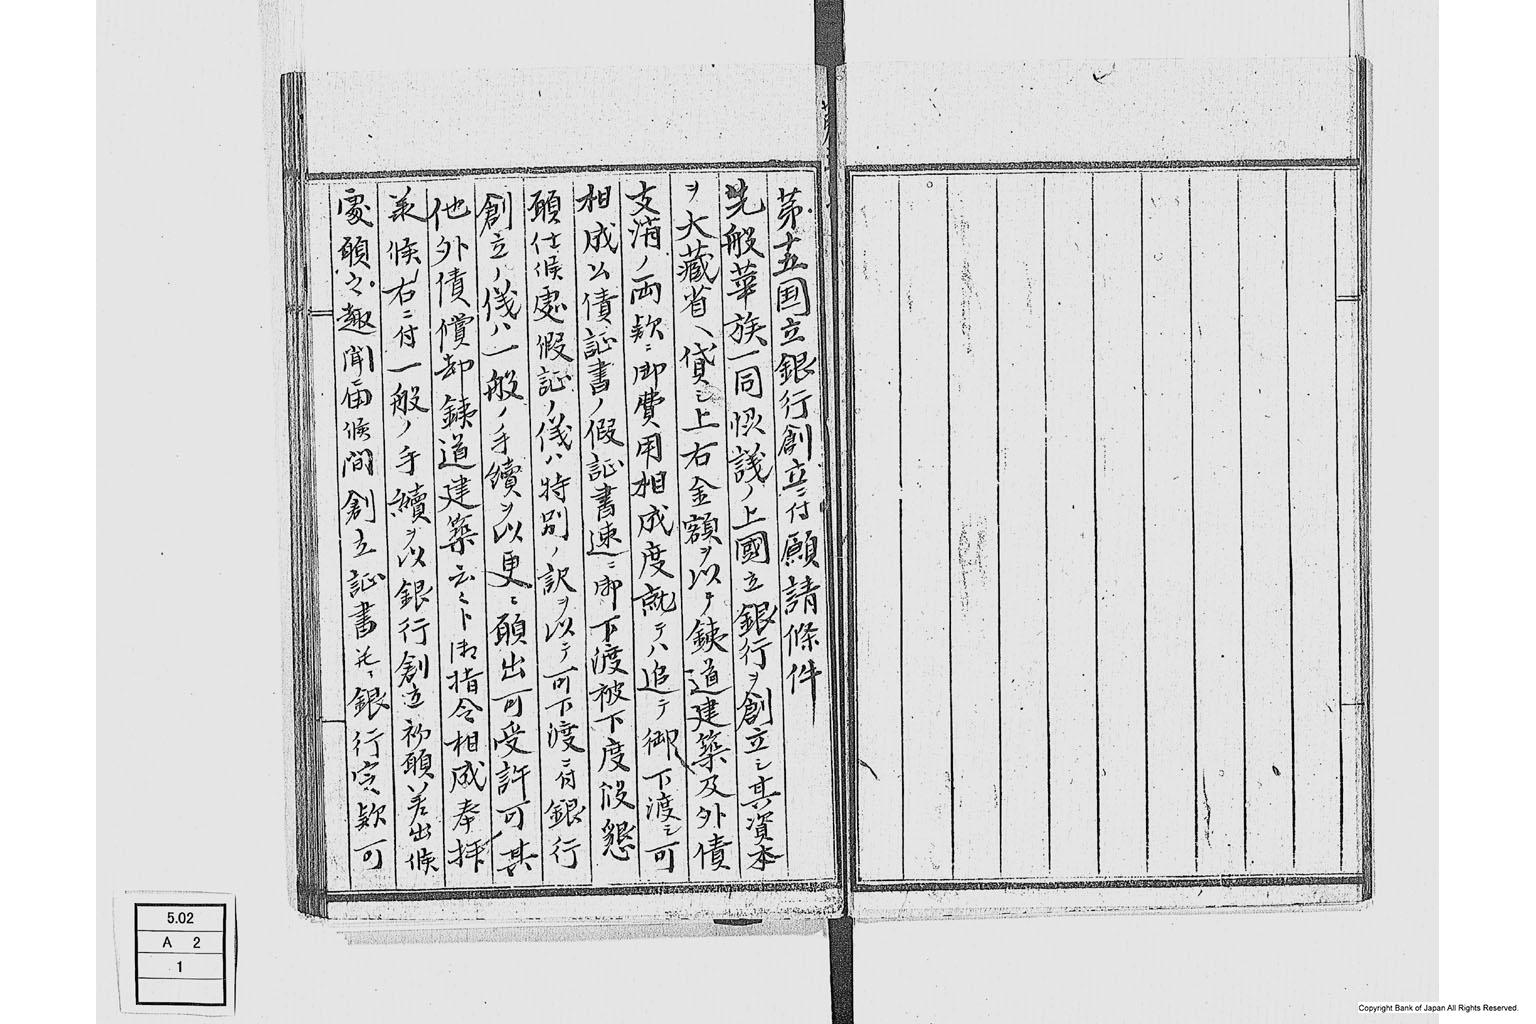 第十五国立銀行創立ニ付願請條件
先般華族一同恊議ノ上國立銀行ヲ創立シ其資本
ヲ大藏省ヘ貸シ上右金額ヲ以テ鉄道建築及外債
支消ノ両款ニ御費用相成度就テハ追テ御下渡シ可
相成公債証書ノ假証書速ニ御下渡被下度段懇
願仕候處假証ノ儀ハ特別ノ訳ヲ以テ可下渡ニ付銀行
創立ノ儀ハ一般ノ手續ヲ以更ニ願出可受許可其
他外債償却鉄道建築云々ト御指令相成奉拝
承候右ニ付一般ノ手續ヲ以銀行創立初願差出候
處願之趣聞届候間創立証書並ニ銀行定款可
5.02
A 2
1
Copyright Bank of Japan All Rights Reserved.